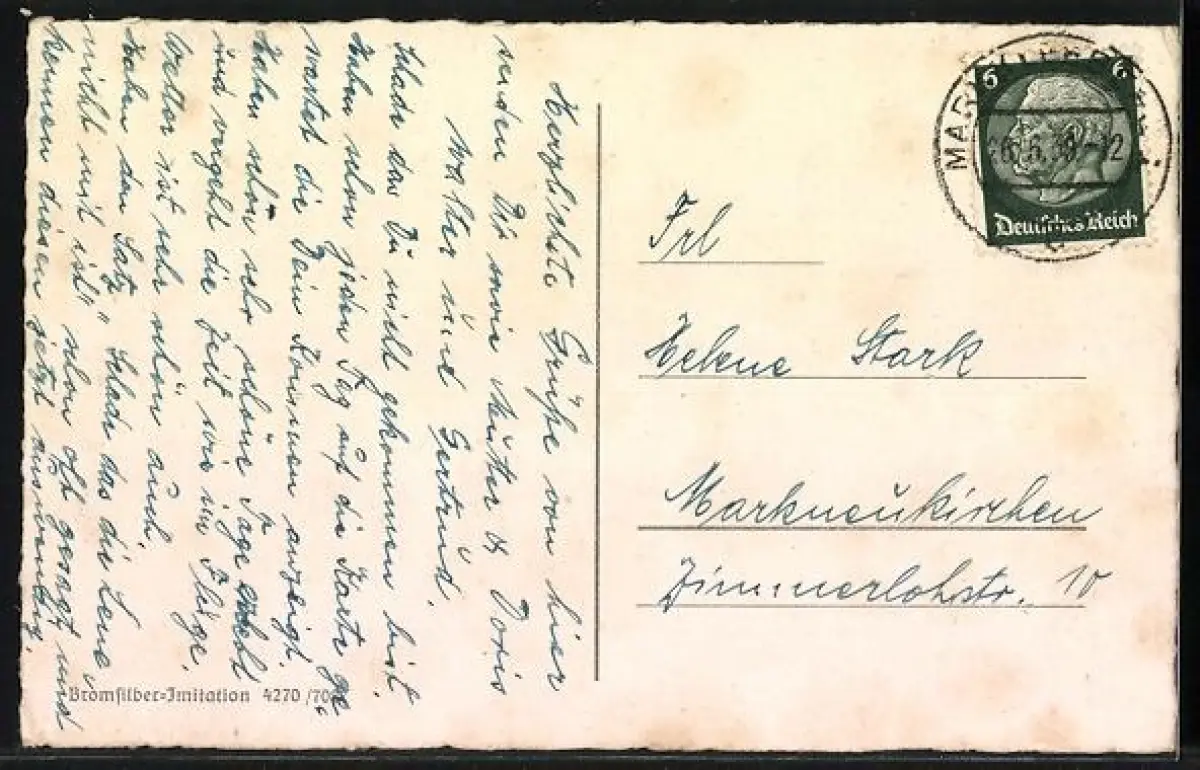 Herzlichste Grüße von hier
senden Dir wir Mutter & Doris
Walter und Gertrud.
Schade das Du nicht gekommen bist.
Haben schon jeden Tag auf die Karte ge
wartet die Dein Kommen anzeigt.
Haben schon sehr schöne Tage
und vergeht die Zeit wie im Fluge.
Wetter ist sehr schön auch.
Haben den Satz "Schade das die Lene
nicht mit ist" schon oft gesagt und
kennen diesen jetzt auswendig.
Bromsilber=Imitation 4270/70
6 6
Deutsches Reich
Frl
Helene Stark
Markneukirchen
Zimmerlohstr. 10